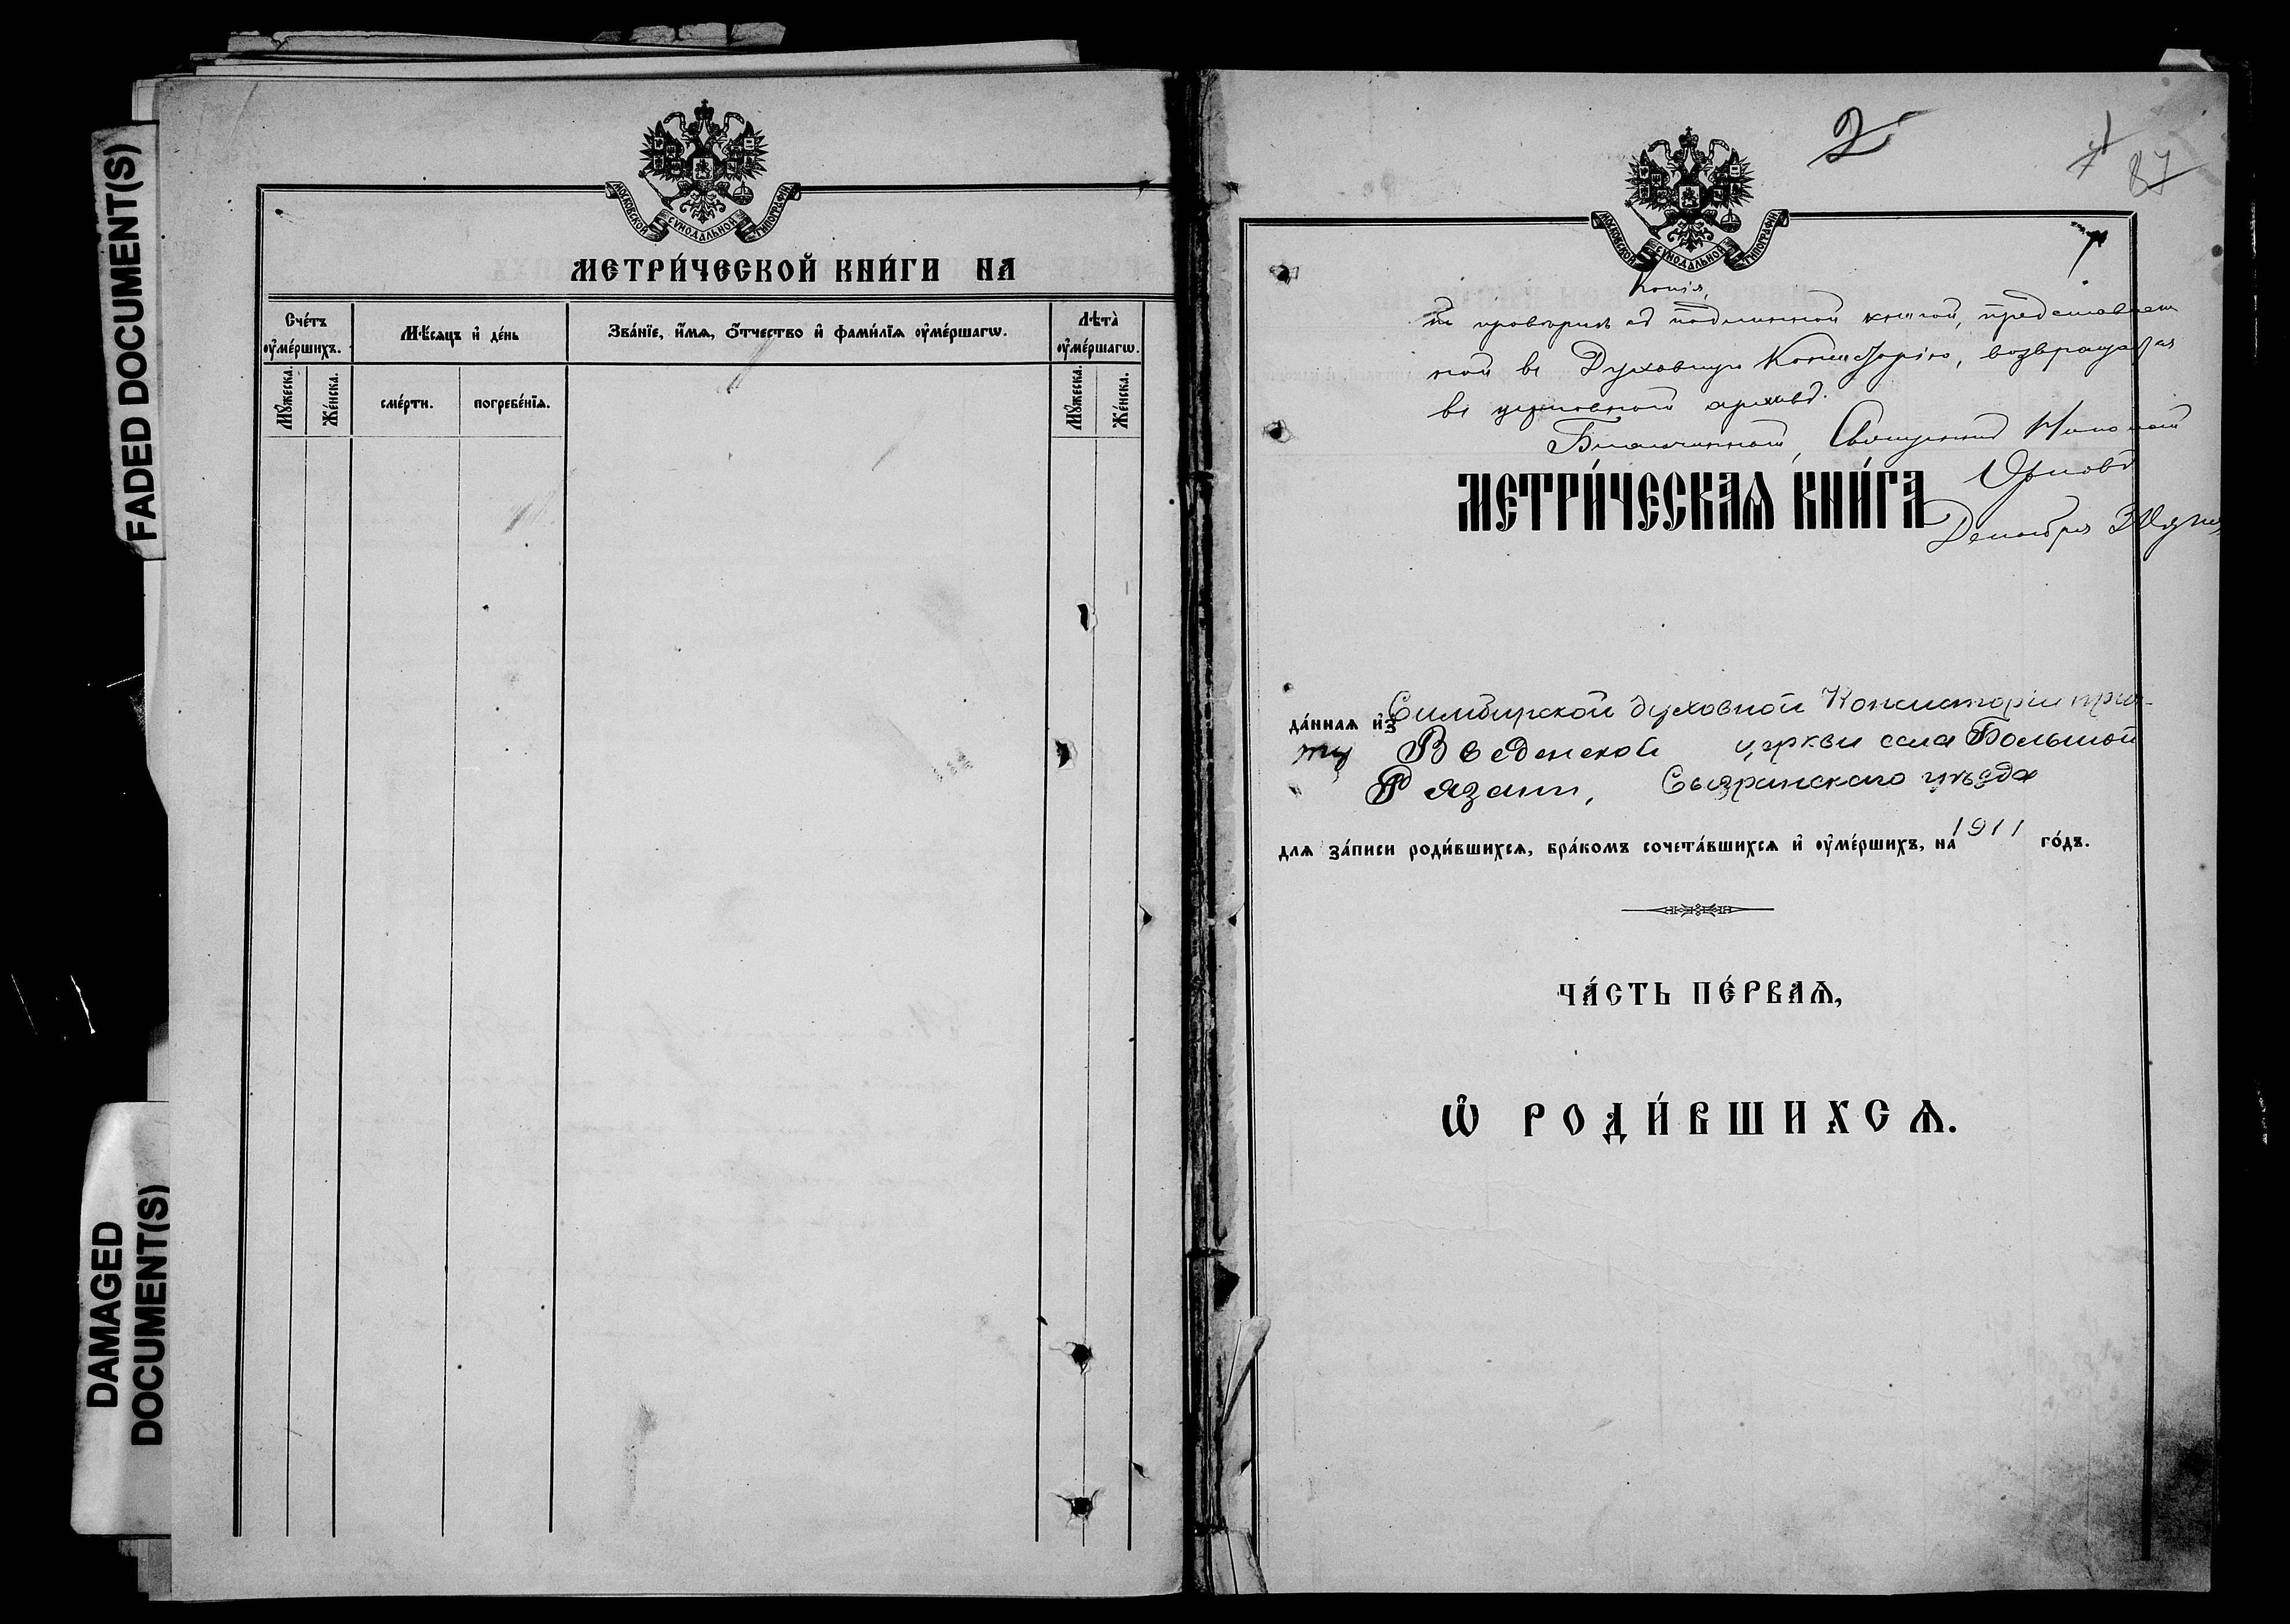 FADED DOCUMENT(S)
DAMAGED
DOCUMENT(S)
МОСКОВСКОЙ СѴНОДАЛЬНОЙ ТИПОГРАФІИ
МЕТРИ́ЧЕСКОЙ КНИ́ГИ НА
Сче́тъ ᲂу҆ме́ршихъ.
Мѣ́сѧцъ и҆ де́нь
Зва́нїе, и҆́мѧ, ѻ҆́тчество и҆ фами́лїѧ ᲂу҆ме́ршагѡ.
Лѣта̀ ᲂу҆ме́ршагѡ.
Мꙋ́жеска.
Же́нска.
сме́рти.
погребе́нїѧ.
Мꙋ́жеска.
Же́нска.
2
87
МОСКОВСКОЙ СѴНОДАЛЬНОЙ ТИПОГРАФІИ
Копія,
съ подлинной книгой, представлен
ной въ Духовную Консисторію, возвращается
въ церковный архивъ.
Благочинный, Священникъ Николай
Орловъ
МЕТРИ́ЧЕСКАѦ КНИ́ГА
Декабря
да́ннаѧ и҆з̾ Симбирской духовной Консисторіи прич-
ту Введенской церкви села Большой
Рязани, Сызранскаго уѣзда
длѧ за́писи роди́вшихсѧ, бра́комъ сочета́вшихсѧ и҆ ᲂу҆ме́ршихъ, на 1911 го́дъ.
ЧА́СТЬ ПЕ́РВАѦ,
Ѽ РОДИ́ВШИХСѦ.